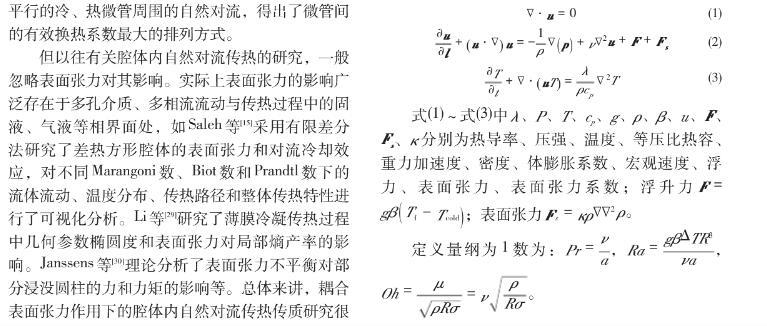 平行的冷、热微管周围的自然对流，得出了微管间
的有效换热系数最大的排列方式。
但以往有关腔体内自然对流传热的研究，一般
忽略表面张力对其影响。实际上表面张力的影响广
泛存在于多孔介质、多相流流动与传热过程中的固
液、气液等相界面处，如Saleh等[15]采用有限差分
法研究了差热方形腔体的表面张力和对流冷却效
应，对不同Marangoni数、Biot数和Prandtl数下的
流体流动、温度分布、传热路径和整体传热特性进
行了可视化分析。Li等[29]研究了薄膜冷凝传热过程
中几何参数椭圆度和表面张力对局部熵产率的影
响。Janssens等[30]理论分析了表面张力不平衡对部
分浸没圆柱的力和力矩的影响等。总体来讲，耦合
表面张力作用下的腔体内自然对流传热传质研究很
∇·u = 0 (1)
∂u/∂t + (u·∇)u = -1/ρ ∇(p) + ν∇²u + F + Fs (2)
∂T/∂t + ∇·(uT) = λ/(ρcp) ∇²T (3)
式(1)~式(3)中λ、P、T、cp、g、ρ、β、u、F、
Fs、κ分别为热导率、压强、温度、等压比热容、
重力加速度、密度、体膨胀系数、宏观速度、浮
力、表面张力、表面张力系数；浮升力F =
gβ(Tf - Tcold)；表面张力Fs = κρ∇∇²ρ。
定义量纲为1数为：Pr = ν/a，Ra = gβΔTR³/νa，
Oh = μ/√(ρRσ) = ν√(ρ/Rσ)。